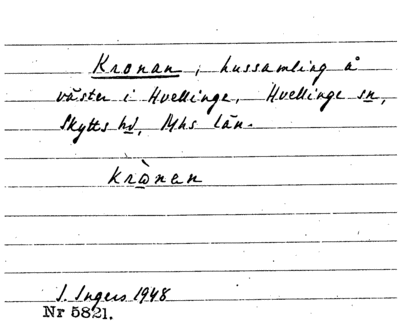 Kronan, hussamling å
väster i Hvellinge, Hvellinge sn,
Skytts hd, Mhs län.
krànan
I. Ingers 1948
Nr 5821.